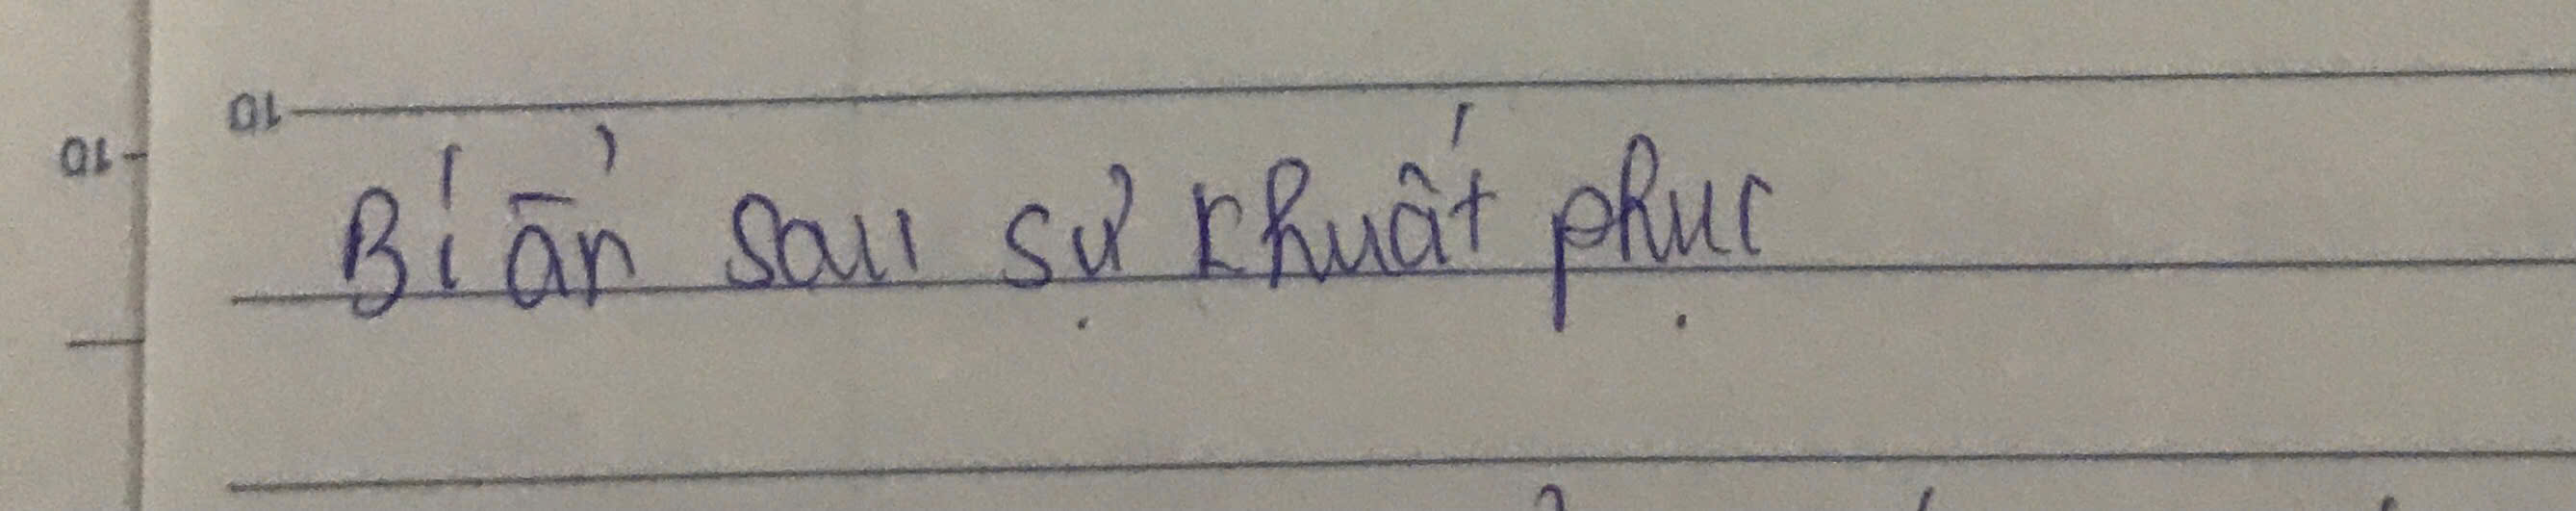 10
10
Bí ẩn sau sự khuất phục